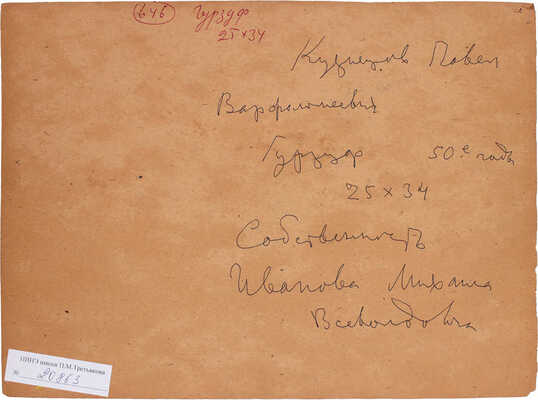 646 Гурзуф
25×34
Кузнецов Павел
Варфоломеевич
Гурзуф 50е годы
25×34
Собственность
Иванова Михаила
Всеволдовича
НИНЭ имени П.М.Третьякова
№ 20863